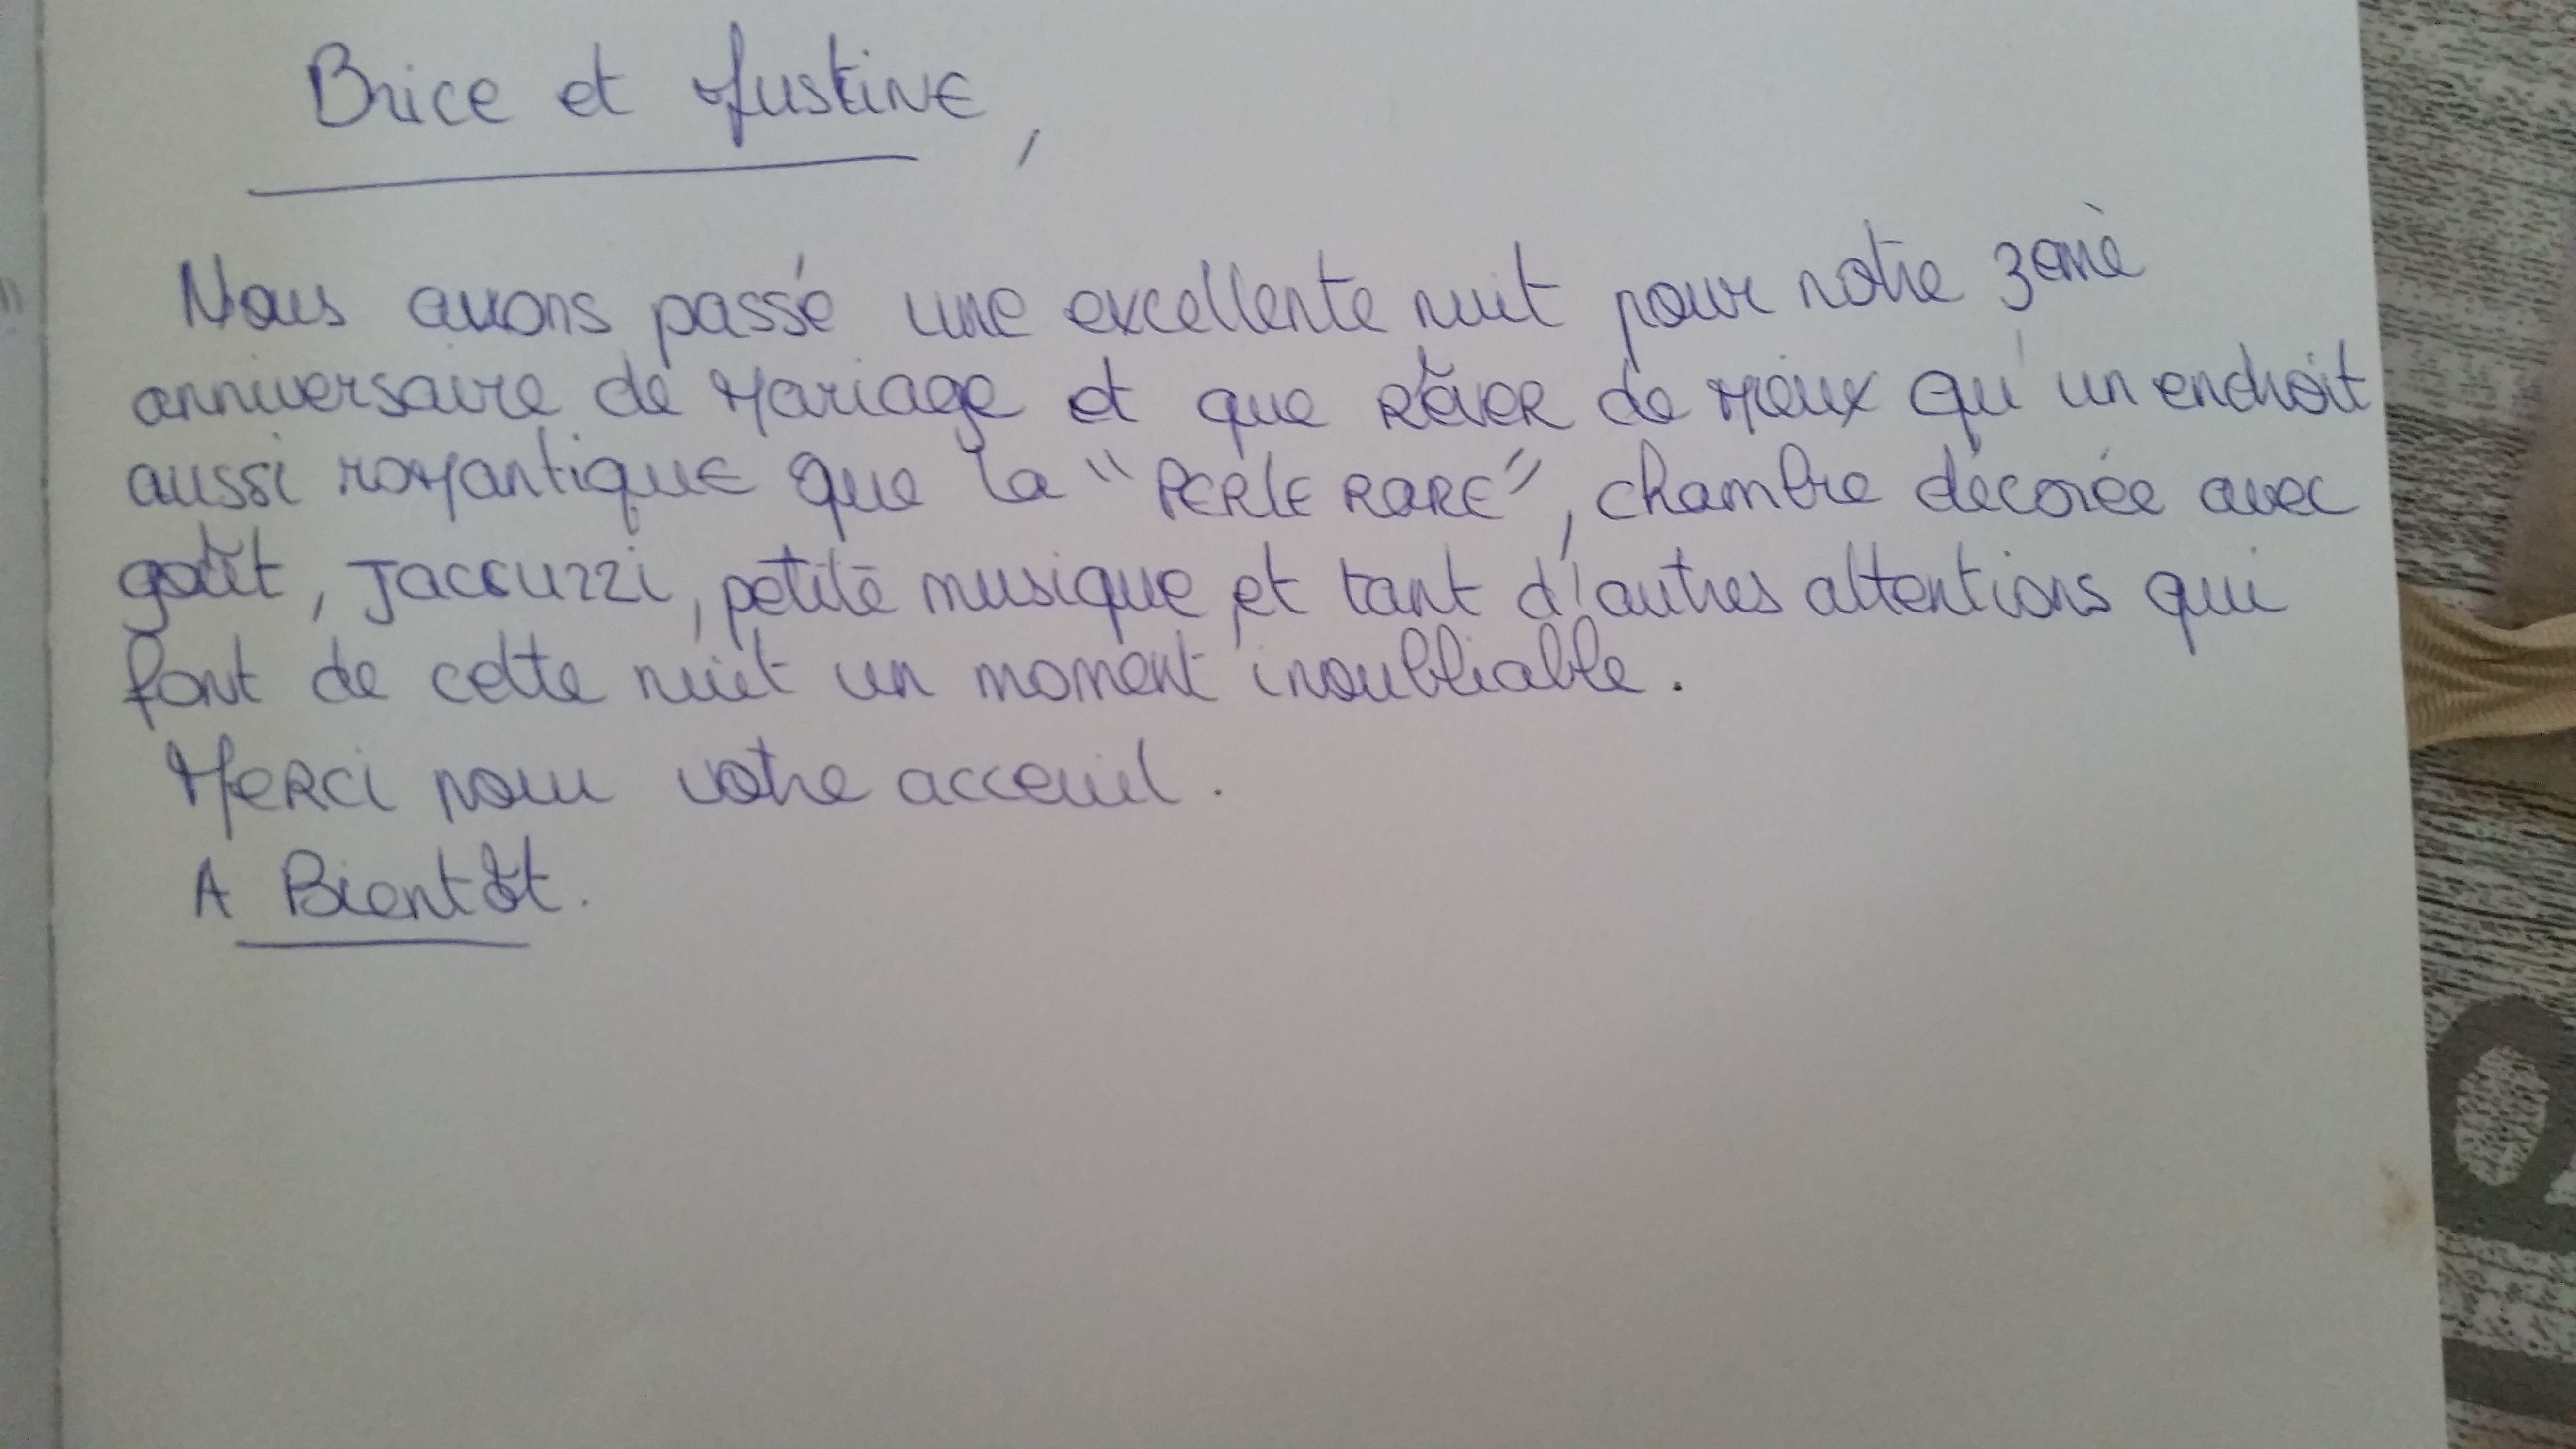 Brice et Justine,
Nous avons passé une excellente nuit pour notre 3emè
anniversaire de Mariage et que Rêver de Mieux qu'un endroit
aussi romantique que la "PERLE RARE", chambre décorée avec
goût, Jaccuzzi, petite musique et tant d'autres attentions qui
font de cette nuit un moment inoubliable.
Merci pour votre acceuil.
A Bientôt.